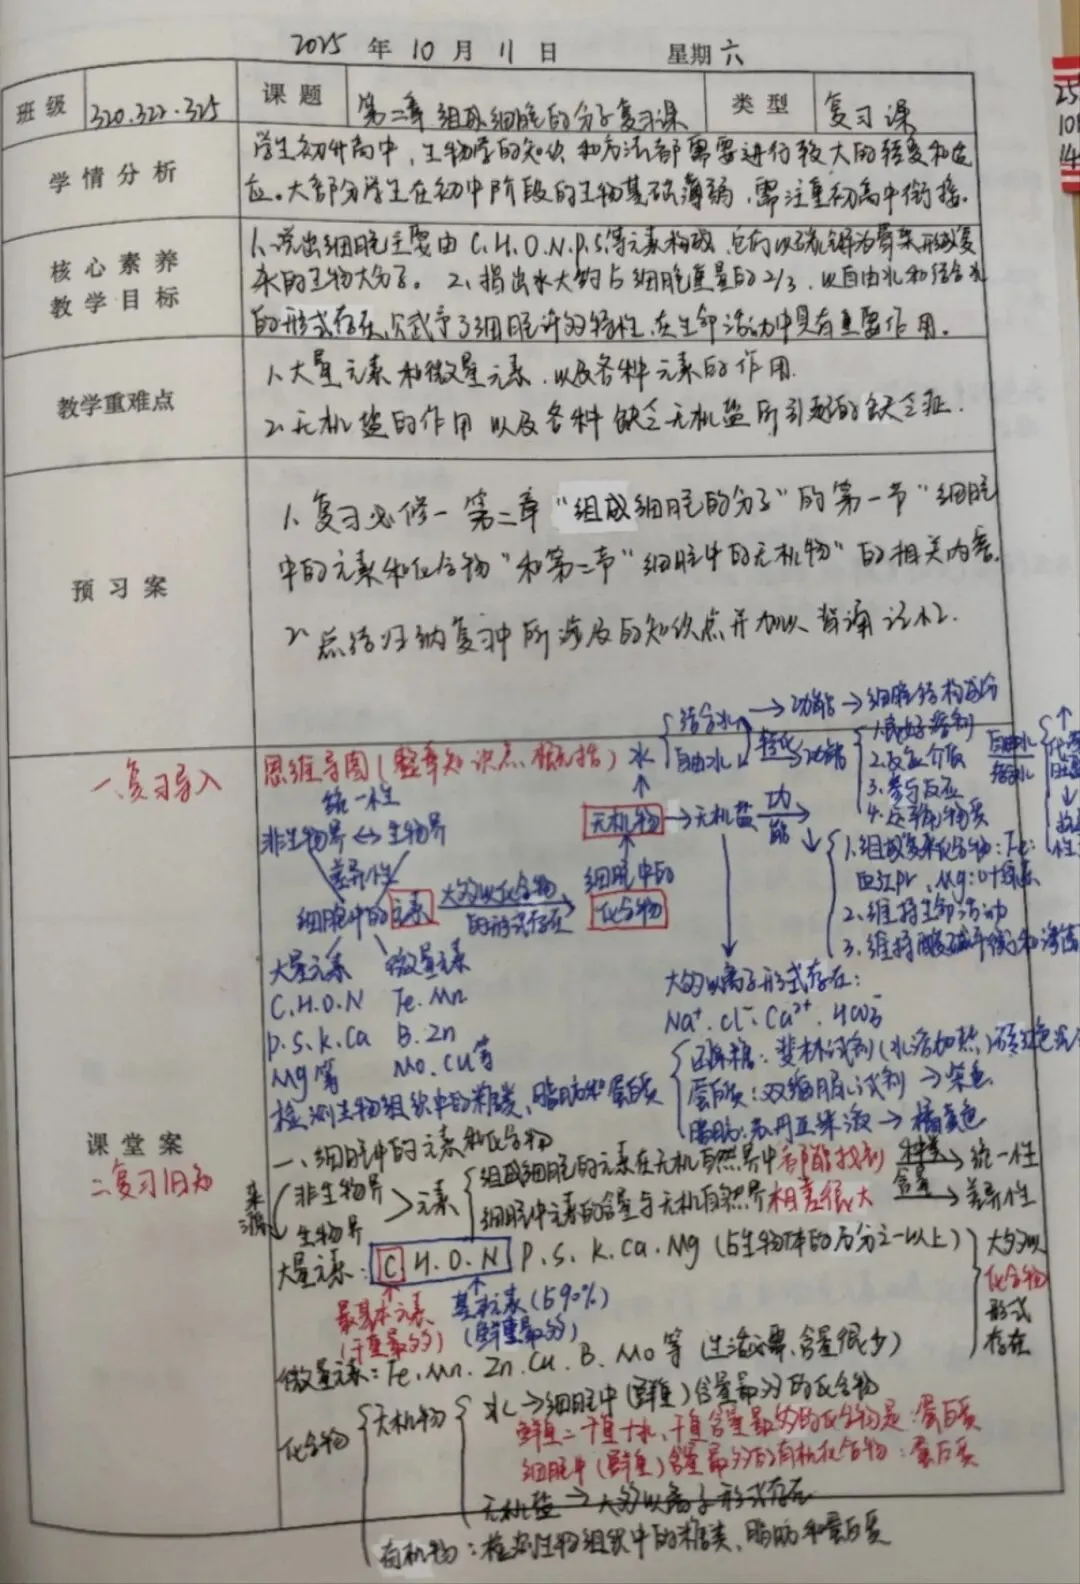 2025 年 10 月 11 日 星期六
班级 320.322.325 课题 第二章 组成细胞的分子复习课 类型 复习课
学情分析
学生初升高中，生物学的知识和方法都需要进行较大的转变和适
应。大部分学生在初中阶段的生物基础薄弱，需注重初高中衔接。
核心素养
教学目标
1、说出细胞主要由C.H.O.N.P.S等元素构成，它们以碳链为骨架形成复
杂的生物大分子。2、指出水大约占细胞重量的2/3，以自由水和结合水
的形式存在，赋予了细胞许多特性，在生命活动中具有重要作用。
教学重难点
1、大量元素和微量元素，以及各种元素的作用.
2、无机盐的作用以及各种缺乏无机盐所引起的缺乏症.
预习案
1、复习必修一第二章“组成细胞的分子”的第一节“细胞
中的元素和化合物”和第二节“细胞中的无机物”的相关内容.
2、总结归纳复习中所涉及的知识点并加以背诵记忆.
课堂案
一、复习导入
思维导图（整章知识点概括）
水 结合水 → 功能 → 细胞结构成分
自由水 转化 功能
1.良好溶剂
2.反应介质
3.参与反应
4.运输物质
自由水
结合水
统一性
非生物界 ↔ 生物界
差异性
细胞中的元素 大多以化合物的形式存在 → 细胞中的化合物
无机物 → 无机盐 功能 →
1.组成复杂化合物：Fe：
血红pr、Mg：叶绿素
2.维持生命活动
3.维持酸碱平衡和渗透
大量元素 微量元素
C.H.O.N Fe.Mn
P.S.K.Ca B.Zn
Mg等 Mo.Cu等
大多以离子形式存在：
Na⁺.Cl⁻.Ca²⁺.HCO₃⁻
检测生物组织中的糖类、脂肪和蛋白质
还原糖：斐林试剂（水浴加热）砖红色沉
蛋白质：双缩脲试剂 → 紫色
脂肪：苏丹Ⅲ染液 → 橘黄色
二、复习旧知
一、细胞中的元素和化合物
来源 非生物界
生物界
元素
组成细胞的元素在无机自然界中都能找到 种类 → 统一性
细胞中元素的含量与无机自然界相差很大 含量 → 差异性
大量元素：C H.O.N P.S.K.Ca.Mg（占生物体的万分之一以上）
最基本元素 基本元素（占90%）
（干重最多） （鲜重最多）
微量元素：Fe.Mn.Zn.Cu.B.Mo等（生活必需，含量很少）
大多以
化合物
形式
存在
化合物 无机物 水→细胞中（鲜重）含量最多的化合物
鲜重=干重+水，干重含量最多的化合物是：蛋白质
细胞中（鲜重）含量最多的有机化合物：蛋白质
无机盐→大多以离子形式存在
有机物：检测生物组织中的糖类、脂肪和蛋白质